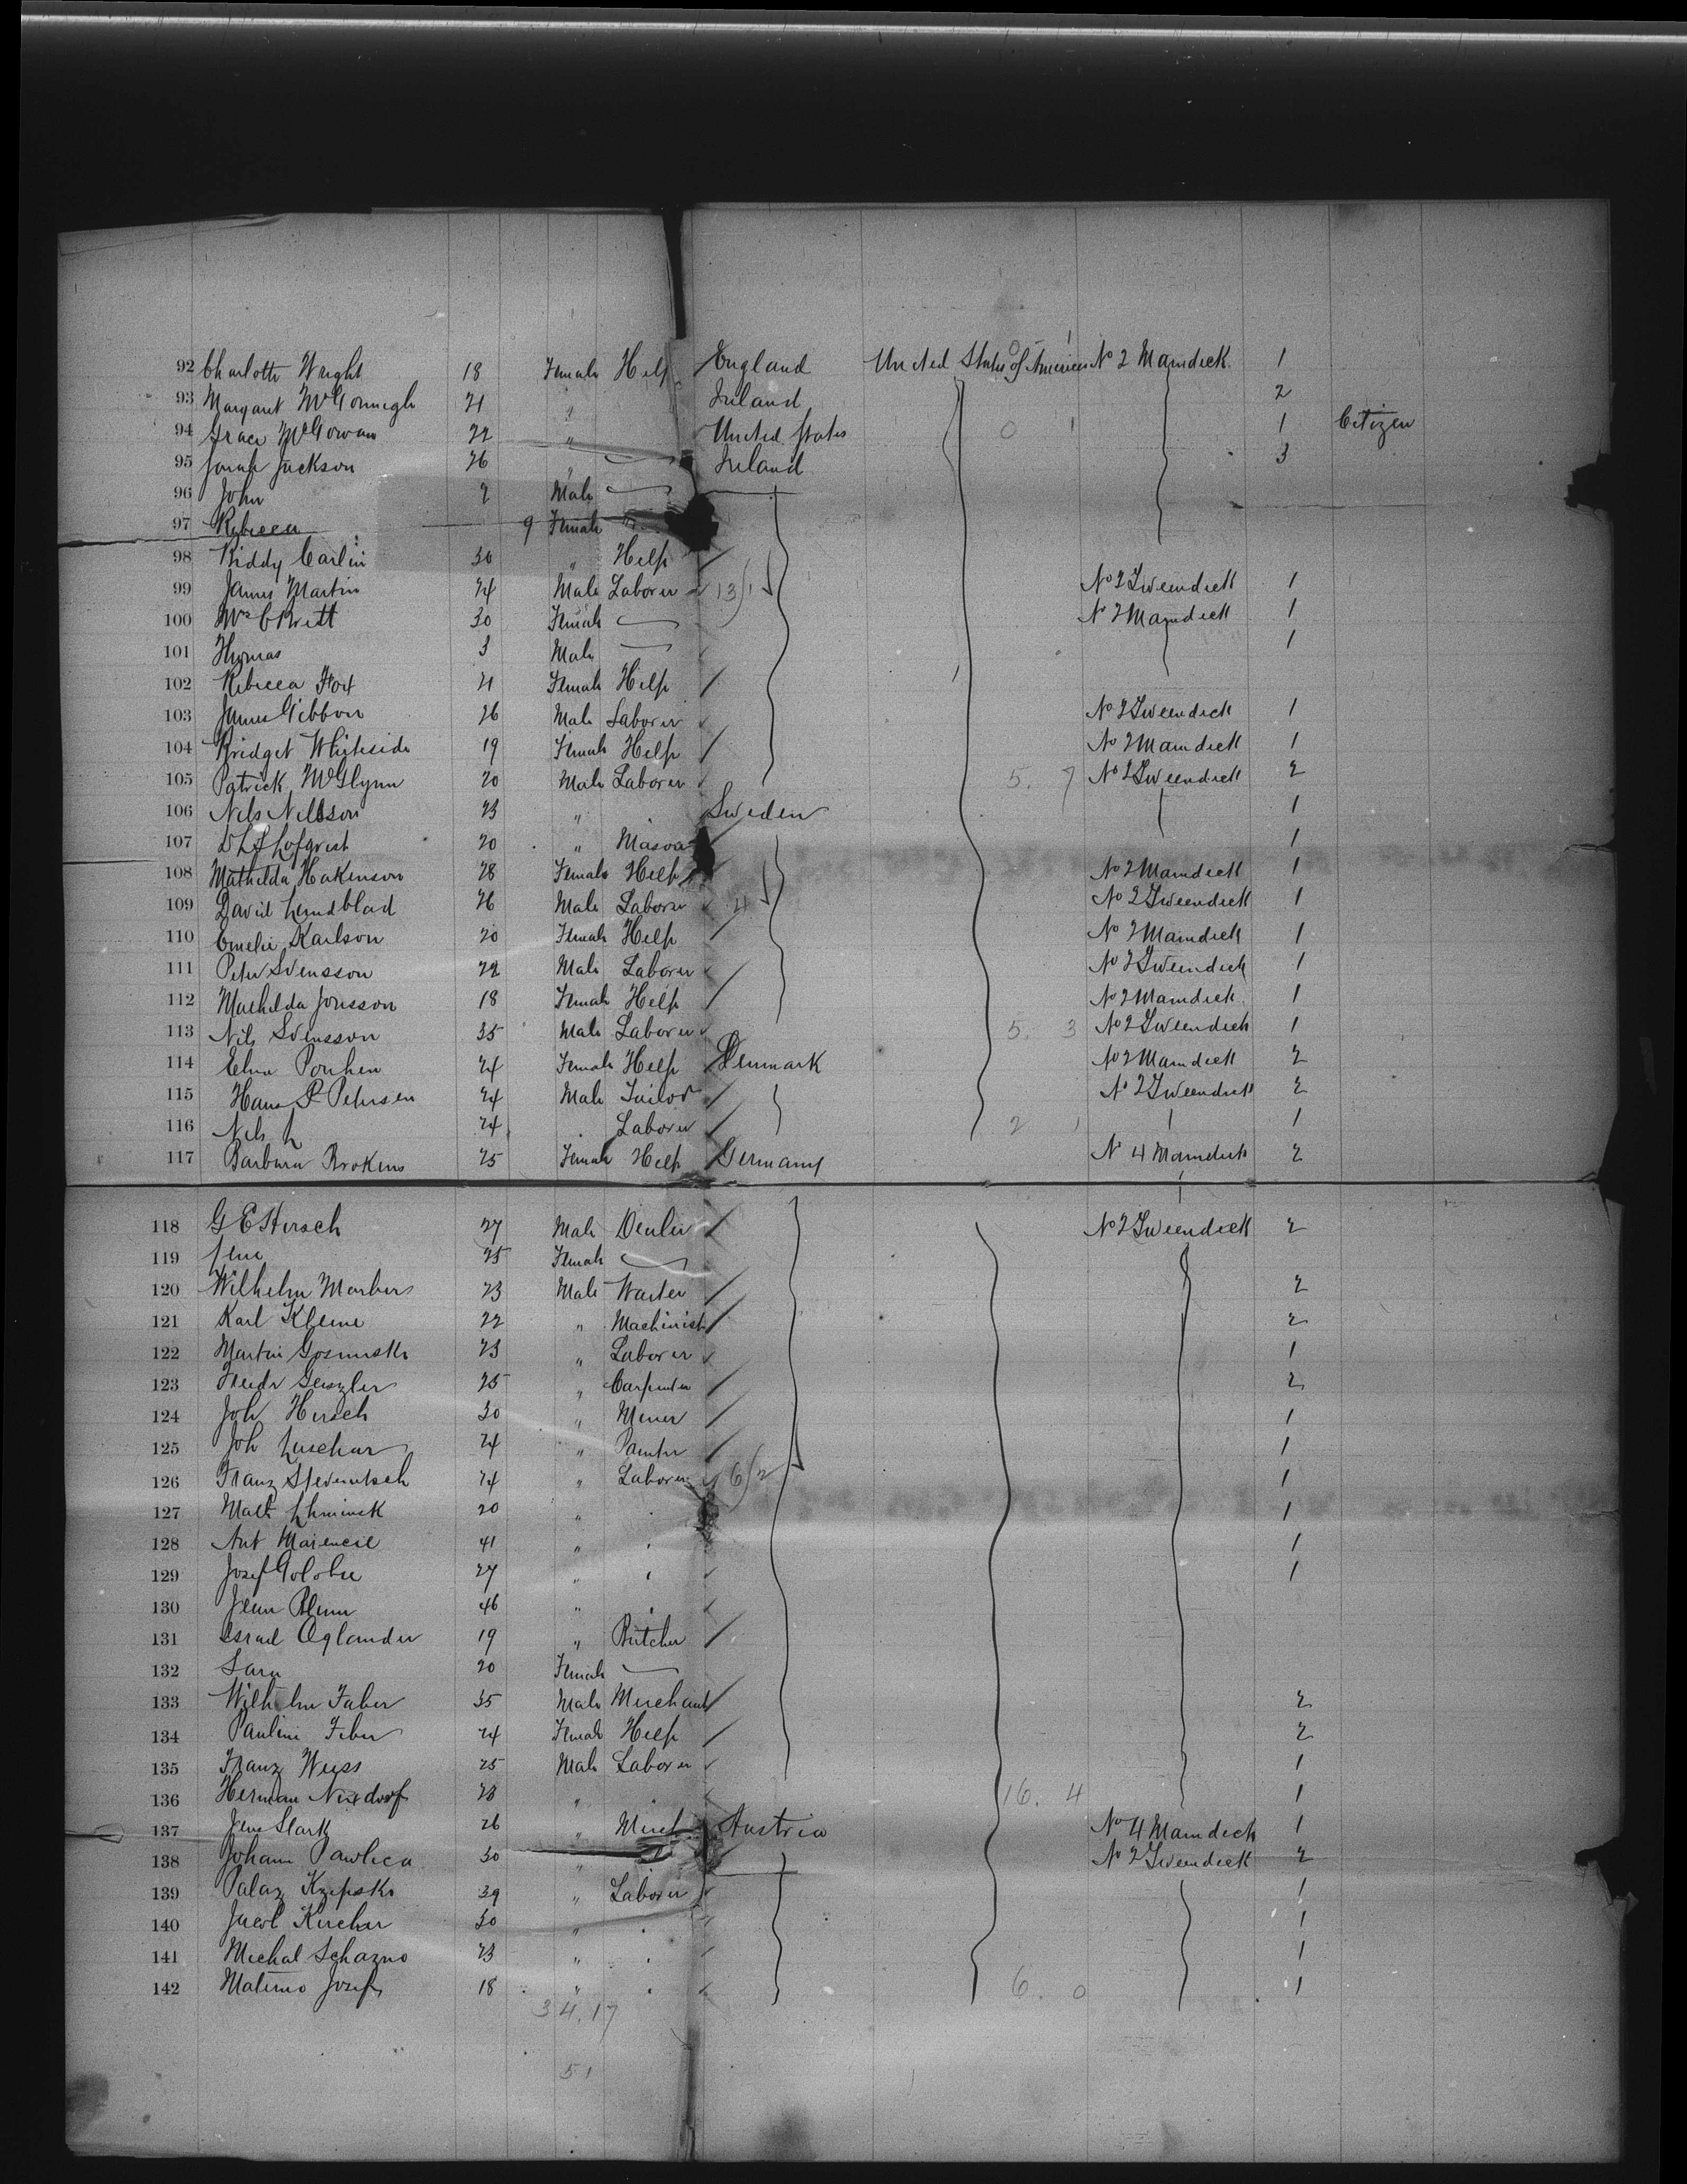 92 Charlotte Wright 18 Female Help England United States of America No 2 Maindeck 1
93 Margaret McGonnigle 21 " Ireland 2
94 Grace McGowan 22 " United States 0 1 1 Citizen
95 Sarah Jackson 26 " Ireland 3
96 John 2 Male
97 Rebecca 9 Female
98 Biddy Carlin 30 " Help
99 James Martin 24 Male Laborer 13 No 2 Tweendeck 1
100 Mrs Britt 30 Female No 2 Maindeck 1
101 Thomas 3 Male 1
102 Rebecca Fox 21 Female Help
103 James Gibbon 26 Male Laborer No 2 Tweendeck 1
104 Bridget Whiteside 19 Female Help No 2 Maindeck 1
105 Patrick McGlynn 20 Male Laborer 5. 7 No 2 Tweendeck 2
106 Nils Nilsson 23 " Sweden 1
107 Lofqvist 20 " Mason 1
108 Mathilda Hakenson 28 Female Help No 2 Maindeck 1
109 David Lundblad 26 Male Laborer 4 No 2 Tweendeck 1
110 Emelie Karlson 20 Female Help No 2 Maindeck 1
111 Peter Svensson 22 Male Laborer No 2 Tweendeck 1
112 Mathilda Jonsson 18 Female Help No 2 Maindeck 1
113 Nils Svensson 35 Male Laborer 5. 3 No 2 Tweendeck 1
114 Elna 24 Female Help Denmark No 2 Maindeck 2
115 Hans P Petersen 24 Male Tailor No 2 Tweendeck 2
116 Nils L 24 Laborer 2 1 1
117 Barbara Brokens 25 Female Help Germany No 4 Maindeck 2
118 G E Hersch 27 Male Dealer No 2 Tweendeck 2
119 25 Female
120 Wilhelm Marbers 23 Male Waiter 2
121 Karl Kleine 22 " Machinist 2
122 Martin 23 " Laborer 1
123 Friedr Genzler 25 " Carpenter 2
124 Joh Hersch 30 " Miner 1
125 Joh 24 " Painter 1
126 Franz 24 " Laborer 6 2 1
127 20 " 1
128 Ant 41 " 1
129 Josef Golobu 27 " 1
130 Jean Blum 46 "
131 Israel Oglander 19 " Butcher
132 Sara 20 Female
133 Wilhelm Faber 35 Male Merchant 2
134 Pauline Feber 24 Female Help 2
135 Franz Weiss 25 Male Laborer 1
136 Herman Nixdorf 23 " 16. 4 1
137 Jens Stark 26 " Austria No 4 Maindeck 1
138 Johann Pawlica 30 " No 2 Tweendeck 2
139 Palaz Kzepski 39 " Laborer 1
140 Jacob Kirchar 30 " 1
141 Michal Schazno 23 " 1
142 Matimo Josef 18 " 6. 0 1
34.17
51